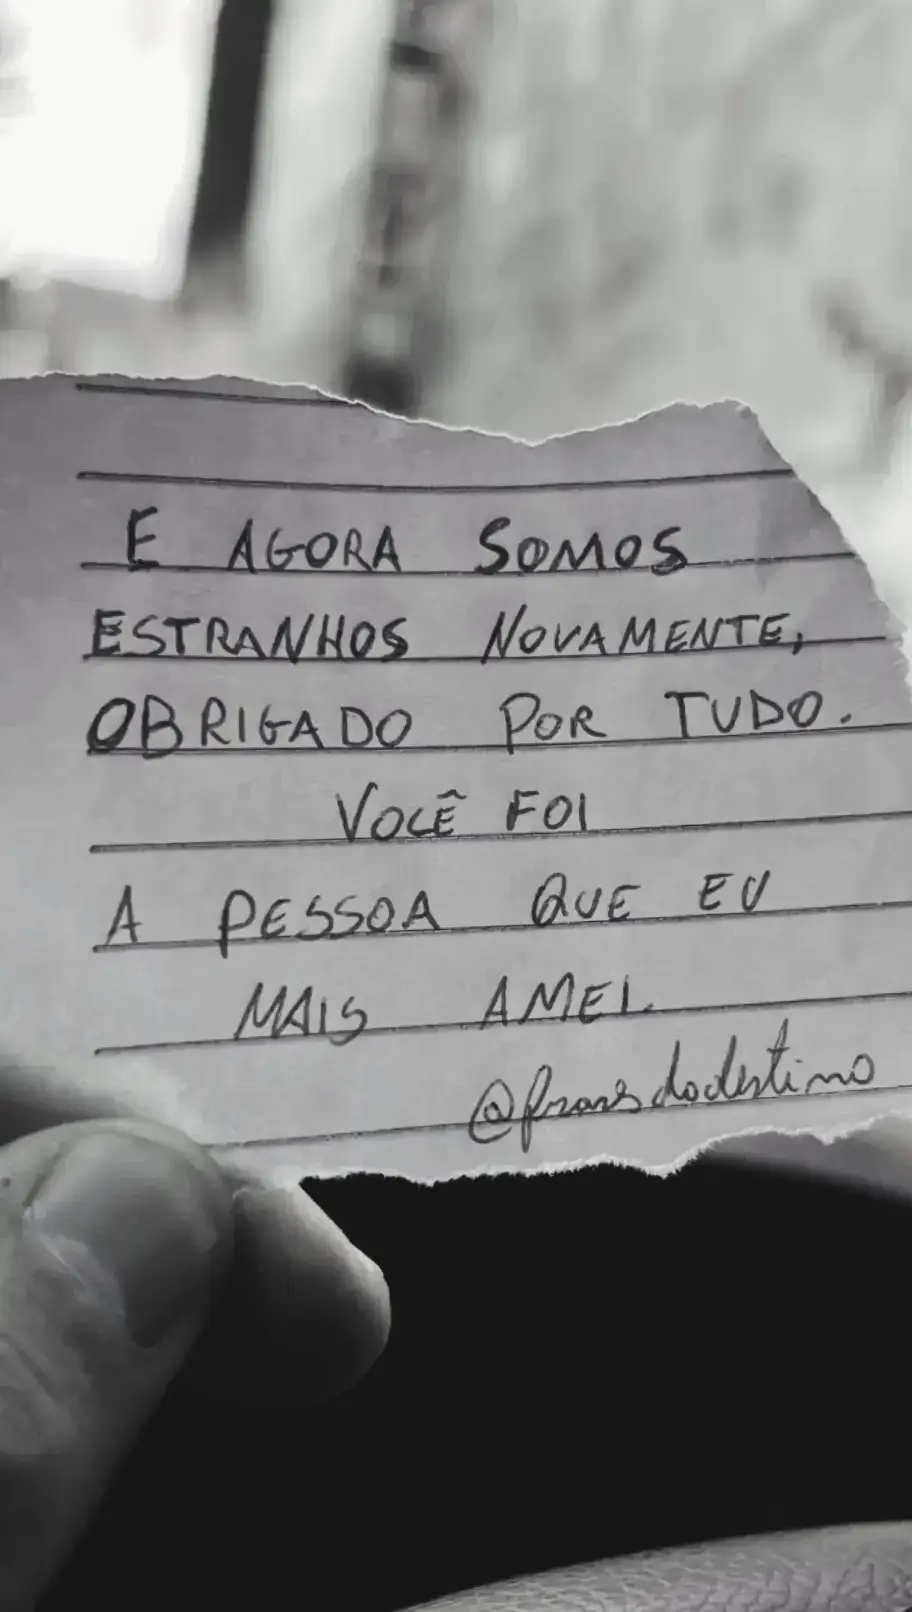 E AGORA SOMOS
ESTRANHOS NOVAMENTE,
OBRIGADO POR TUDO.
VOCÊ FOI
A PESSOA QUE EU
MAIS AMEI.
@frasesdodestino